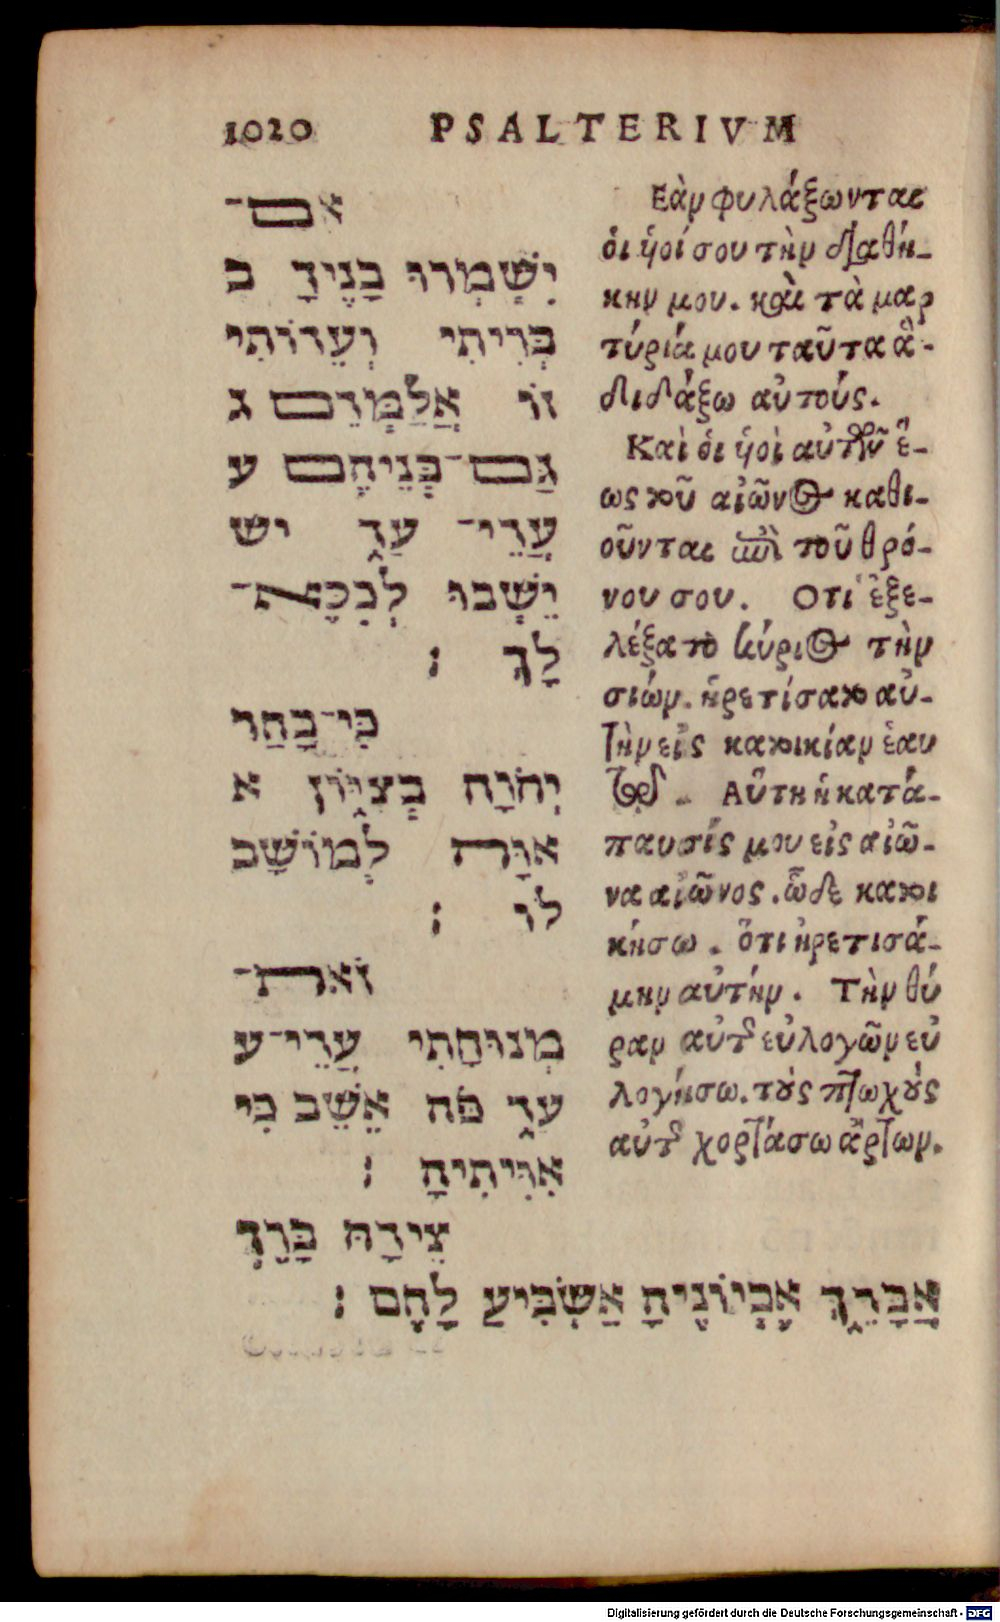 1020 PSALTERIVM
אם־
יִשְׁמְרוּ בָנֶיךָ ב
בְּרִיתִי וְעֵדוֹתִי
זוֹ אֲלַמְּדֵם ג
גַּם־בְּנֵיהֶם ע
עֲדֵי־ עַד יש
יֵשְׁבוּ לְכִכֵּא־
לָךְ ׃
כִּי־בָחַר
יְהֹוָה בְּצִיּוֹן א
אִוָּהּ לְמוֹשָׁב
לוֹ ׃
זֹאת־
מְנוּחָתִי עֲדֵי־ע
עַד פֹּה אֵשֵׁב כִּי
אִוִּיתִיהָ ׃
צֵידָהּ בָּרֵךְ
אֲבָרֵךְ אֶבְיוֹנֶיהָ אַשְׂבִּיעַ לָחֶם ׃
Εὰν φυλάξωνται
ὁι ὑοί σου τὴν διαθή-
κην μου. καὶ τὰ μαρ
τύριά μου ταῦτα ἃ-
διδάξω αὐτούς.
Καὶ ὁι ὑοὶ αὐτῶν ἕ-
ως τοῦ αἰῶνος καθι-
οῦνται ἐπὶ τοῦ θρό-
νου σου. Οτι ἐξε-
λέξατο κύριος τὴν
σιών. ᾑρετίσατο αὐ-
τὴν εἰς κατοικίαν ἑαυ
τῷ. Αὕτη ἡ κατά-
παυσίς μου εἰς αἰῶ-
να αἰῶνος. ὧδε κατοι
κήσω. ὅτι ᾑρετισά-
μην αὐτήν. Τὴν θύ
ραν αὐτοῦ εὐλογῶν εὐ
λογήσω. τοὺς πτωχοὺς
αὐτοῦ χορτάσω ἄρτων.
Digitalisierung gefördert durch die Deutsche Forschungsgemeinschaft - DFG